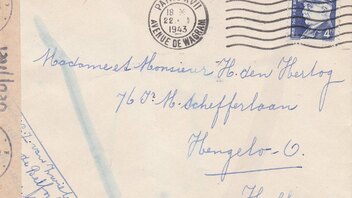 PARIS XVII
18 H
22 - 1
1943
AVENUE DE WAGRAM
4F
Geöffnet
Madame et Monsieur H. den Hertog
76 Jr. M. Schefferlaan
Hengelo-O.